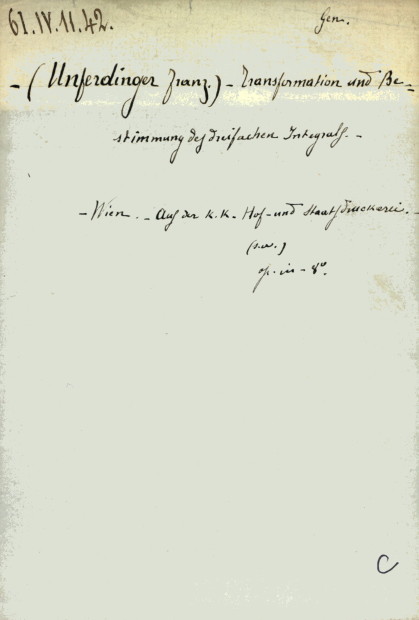 61.IV.11.42.
Gen.
- (Unferdinger Franz.) - Transformation und Be=
stimmung des dreifachen Integrals. -
- Wien. - Aus der K. K. Hof- und Staatsdruckerei. -
(s.a.)
op. in - 8°.
C